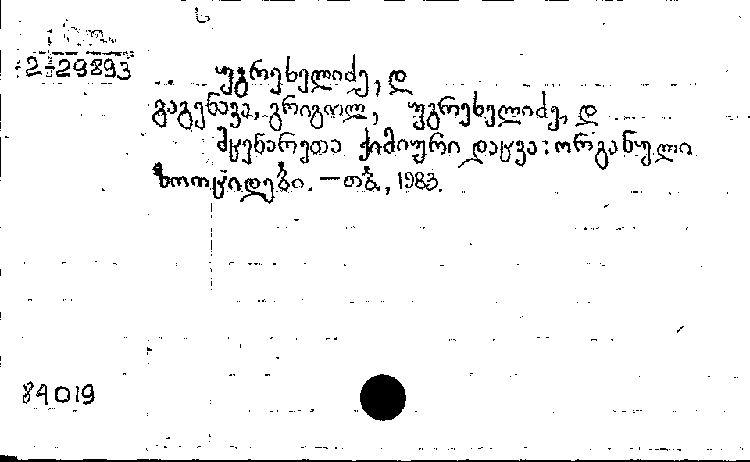 2-29893
უგრეხელიძე, დ
გაგენავა, გრიგოლ, უგრეხელიძე, დ
მცენარეთა ქიმიური დაცვა: ორგანული
ზოოციდები. — თბ., 1983.
84019